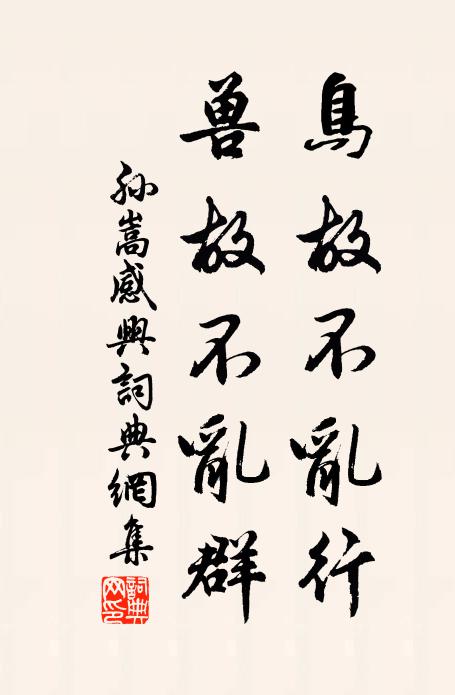 鳥故不亂行
兽故不亂群
孙嵩感興詞典網集
詞典网印